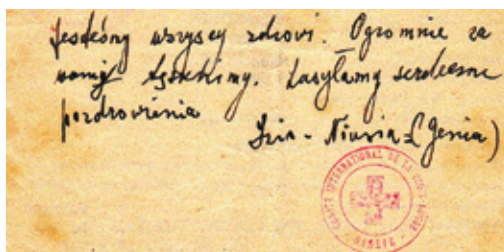 Jesteśmy wszyscy zdrowi. Ogromnie za
wami tęsknimy. Zasyłamy serdeczne
pozdrowienia
Niusia (Genia)
COMITÉ INTERNATIONAL DE LA CROIX-ROUGE
GENÈVE